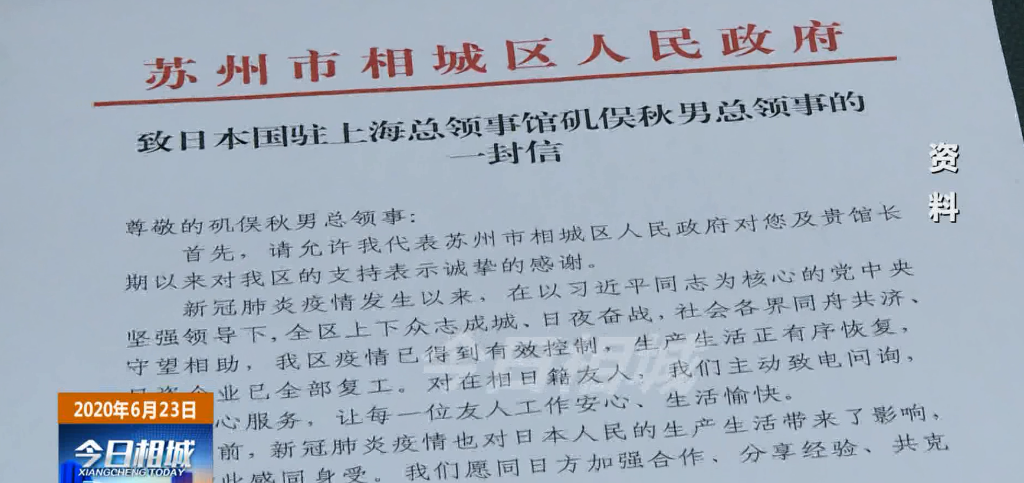 苏州市相城区人民政府
致日本国驻上海总领事馆矶俣秋男总领事的
一封信
资料
尊敬的矶俣秋男总领事：
首先，请允许我代表苏州市相城区人民政府对您及贵馆长
期以来对我区的支持表示诚挚的感谢。
新冠肺炎疫情发生以来，在以习近平同志为核心的党中央
坚强领导下，全区上下众志成城、日夜奋战，社会各界同舟共济、
守望相助，我区疫情已得到有效控制，生产生活正有序恢复，
业已全部复工。对在相日籍友人，我们主动致电问询，
心服务，让每一位友人工作安心、生活愉快。
前，新冠肺炎疫情也对日本人民的生产生活带来了影响，
此感同身受。我们愿同日方加强合作、分享经验、共克
今日相城
2020年6月23日
今日相城
XIANGCHENG TODAY